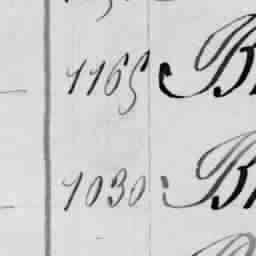 1165 Br
1030 Br